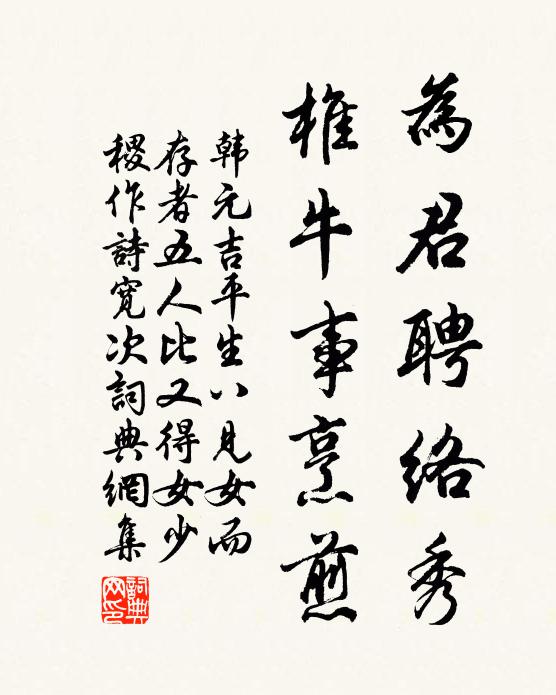 為君聘絡秀
椎牛事烹煎
韩元吉平生八見女而
存者五人比又得女少
稷作詩寬次詞典網集
詞典
网印